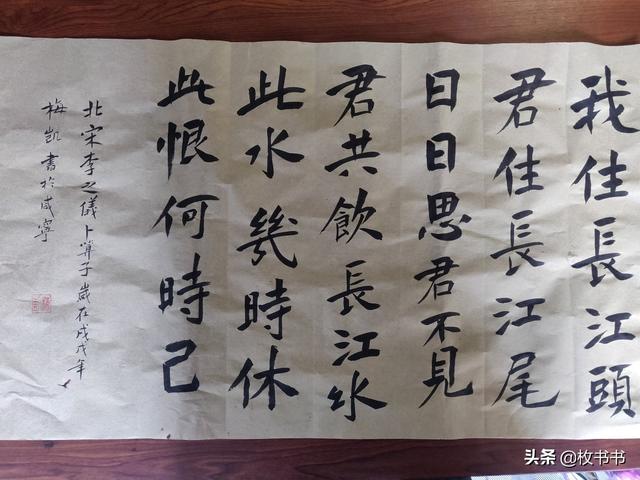 我住長江頭
君住長江尾
日日思君不見
君共飲長江水
此水幾時休
此恨何時己
北宋李之儀卜算子歲在戊戌年
梅凱書於咸寧
头条 @枚书书